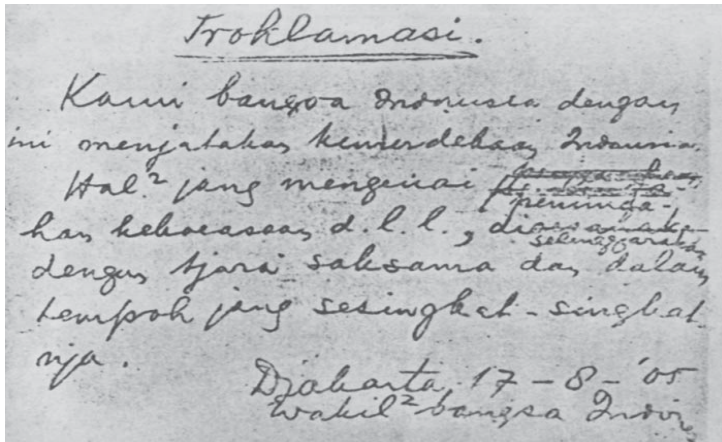 Proklamasi.
Kami bangsa Indonesia dengan
ini menjatakan kemerdekaan Indonesia.
Hal² jang mengenai
peminda-
han kekoeasaan d.l.l.,
diselenggarakan
dengan tjara saksama dan dalam
tempoh jang sesingkat-singkat
nja.
Djakarta, 17-8-'05
Wakil² bangsa Indonesia